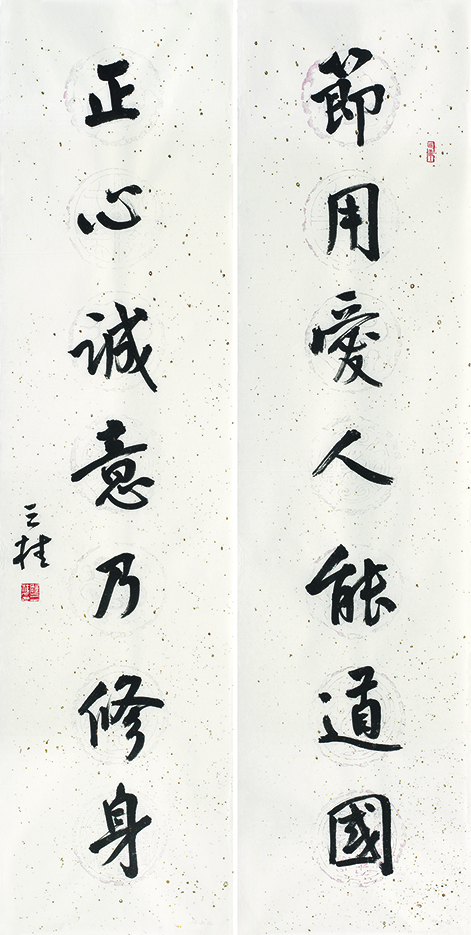 節用愛人能道國
正心誠意乃修身
三桂